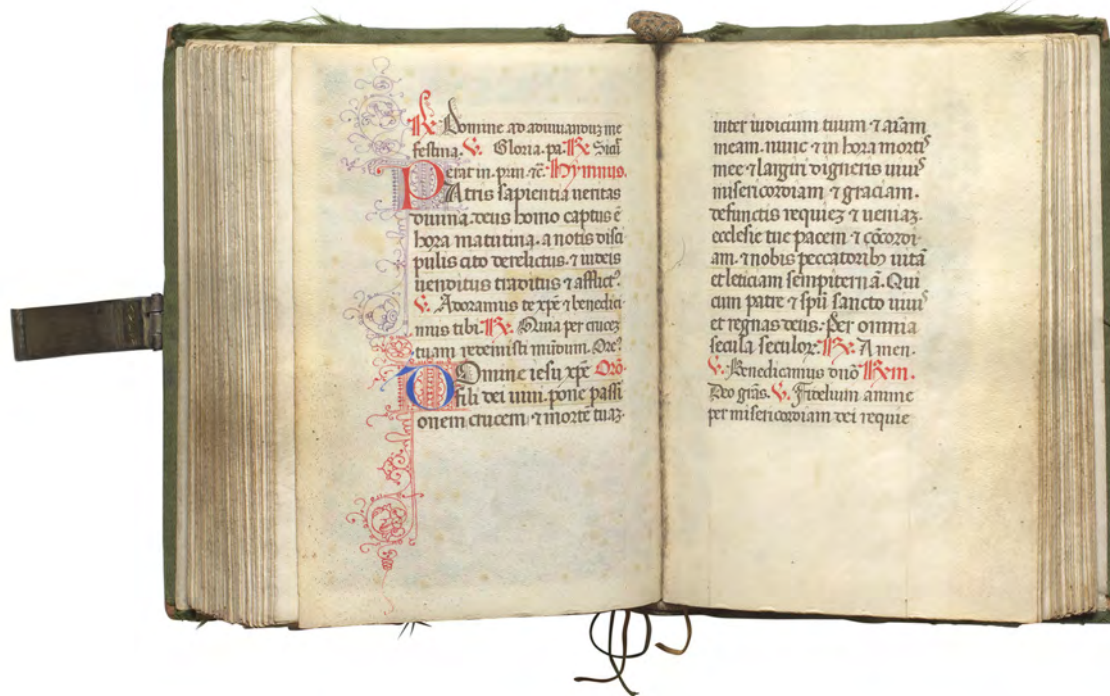 ℟. Domine ad adiuuanduʒ me
festina. ℣. Gloria. pa. ℟ Sicut̄
erat in. prin. ⁊c̄. Hymnus.
PAtris sapientia ueritas
diuina. deus homo captus ē
hora matutina. a notis disci
pulis cito derelictus. ⁊ iudeis
uenditus traditus ⁊ afflictꝰ.
℣. Adoramus te xp̄e ⁊ benedici
mus tibi. ℟. Quia per cruceʒ
tuam redemisti mūdum. Oreꝰ
DOmine iesu xp̄e Orō.
fili dei uiui. pone passi
onem crucem. ⁊ morte tuaʒ.
inter iudicium tuum. ⁊ aīam
meam. nunc ⁊ in hora mortis
mee ⁊ largiri digneris uiuis
misericordiam ⁊ graciam.
defunctis requieʒ ⁊ ueniaʒ.
ecclesie tue pacem ⁊ cōcordi
am. ⁊ nobis peccatoribꝫ uitā
et leticiam sempiternā. Qui
cum patre ⁊ spū sancto uiuis
et regnas deus. Per omnia
secula seculoꝝ. ℟. Amen.
℣. Benedicamus dn̄o ℟em.
Deo grās. ℣. Fidelium anime
per misericordiam dei requie